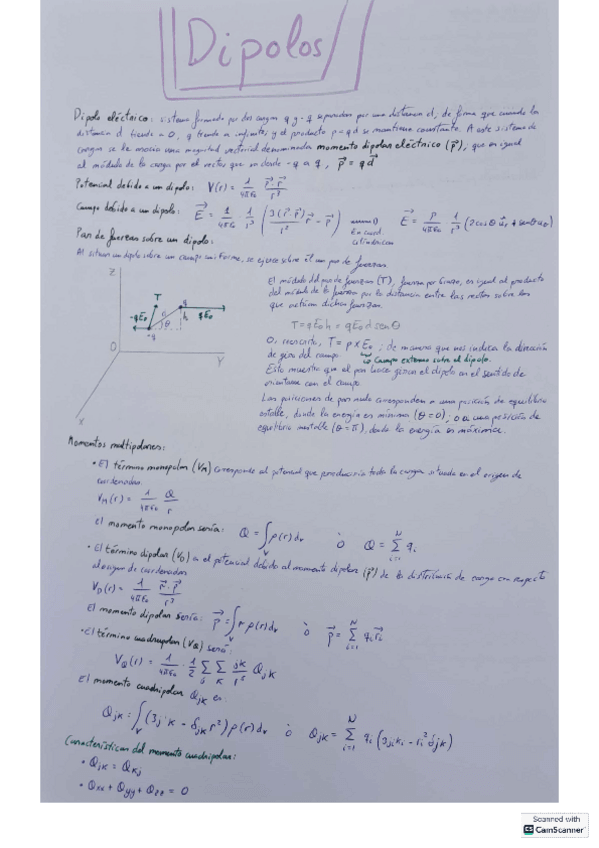 Dipolos
Dipolo eléctrico: sistema formado por dos cargas q y -q separadas por una distancia d, de forma que cuando la
distancia d tiende a 0, q tiende a infinito, y el producto p = qd se mantiene constante. A este sistema de
cargas se le asocia una magnitud vectorial denominada momento dipolar eléctrico (p⃗), que es igual
al módulo de la carga por el vector que va desde -q a q, p⃗ = q d⃗
Potencial debido a un dipolo: V(r) = 1/4πε₀ p⃗·r⃗/r³
Campo debido a un dipolo: E⃗ = 1/4πε₀ 1/r³ (3(r⃗·p⃗)/r² r⃗ - p⃗) E⃗ = p/4πε₀ · 1/r³ (2cosθ u⃗r + senθ uθ)
En coord.
Par de fuerzas sobre un dipolo:
Al situar un dipolo sobre un campo uniforme, se ejerce sobre él un par de fuerzas
Z
T
q
-qE₀
qE₀
θ
h
-q
O
Y
X
El módulo del par de fuerzas (T), fuerza por brazo, es igual al producto
del módulo de la fuerza por la distancia entre las rectas sobre las
que actúan dichas fuerzas
T = qE₀h = qE₀ d senθ
O, reescrito, T = p × E₀; de manera que nos indica la dirección
de giro del campo
Campo externo sobre el dipolo.
Esto muestra que el par hace girar el dipolo en el sentido de
orientarse con el campo
Las posiciones de par nulo corresponden a una posición de equilibrio
estable, donde la energía es mínima (θ = 0); o a una posición de
equilibrio inestable (θ = π), donde la energía es máxima.
Momentos multipolares:
• El término monopolar (VM) corresponde al potencial que produciría toda la carga situada en el origen de
coordenadas.
VM(r) = 1/4πε₀ Q/r
El momento monopolar sería: Q = ∫v ρ(r)dv ó Q = Σ(i=1, N) qi
• El término dipolar (VD) es el potencial debido al momento dipolar (p⃗) de la distribución de carga con respecto
al origen de coordenadas
VD(r) = 1/4πε₀ p⃗·r⃗/r³
El momento dipolar sería: p⃗ = ∫v r ρ(r)dv ó p⃗ = Σ(i=1, N) qi r⃗i
• El término cuadrupolar (VQ) será:
VQ(r) = 1/4πε₀ · 1/2 Σj Σk jk/r⁵ Qjk
El momento cuadripolar Qjk es:
Qjk = ∫v (3j·k - δjk r²) ρ(r)dv ó Qjk = Σ(i=1, N) qi (3ji ki - ri² δjk)
Características del momento cuadripolar:
• Qjk = Qkj
• Qxx + Qyy + Qzz = 0
Scanned with
CamScanner